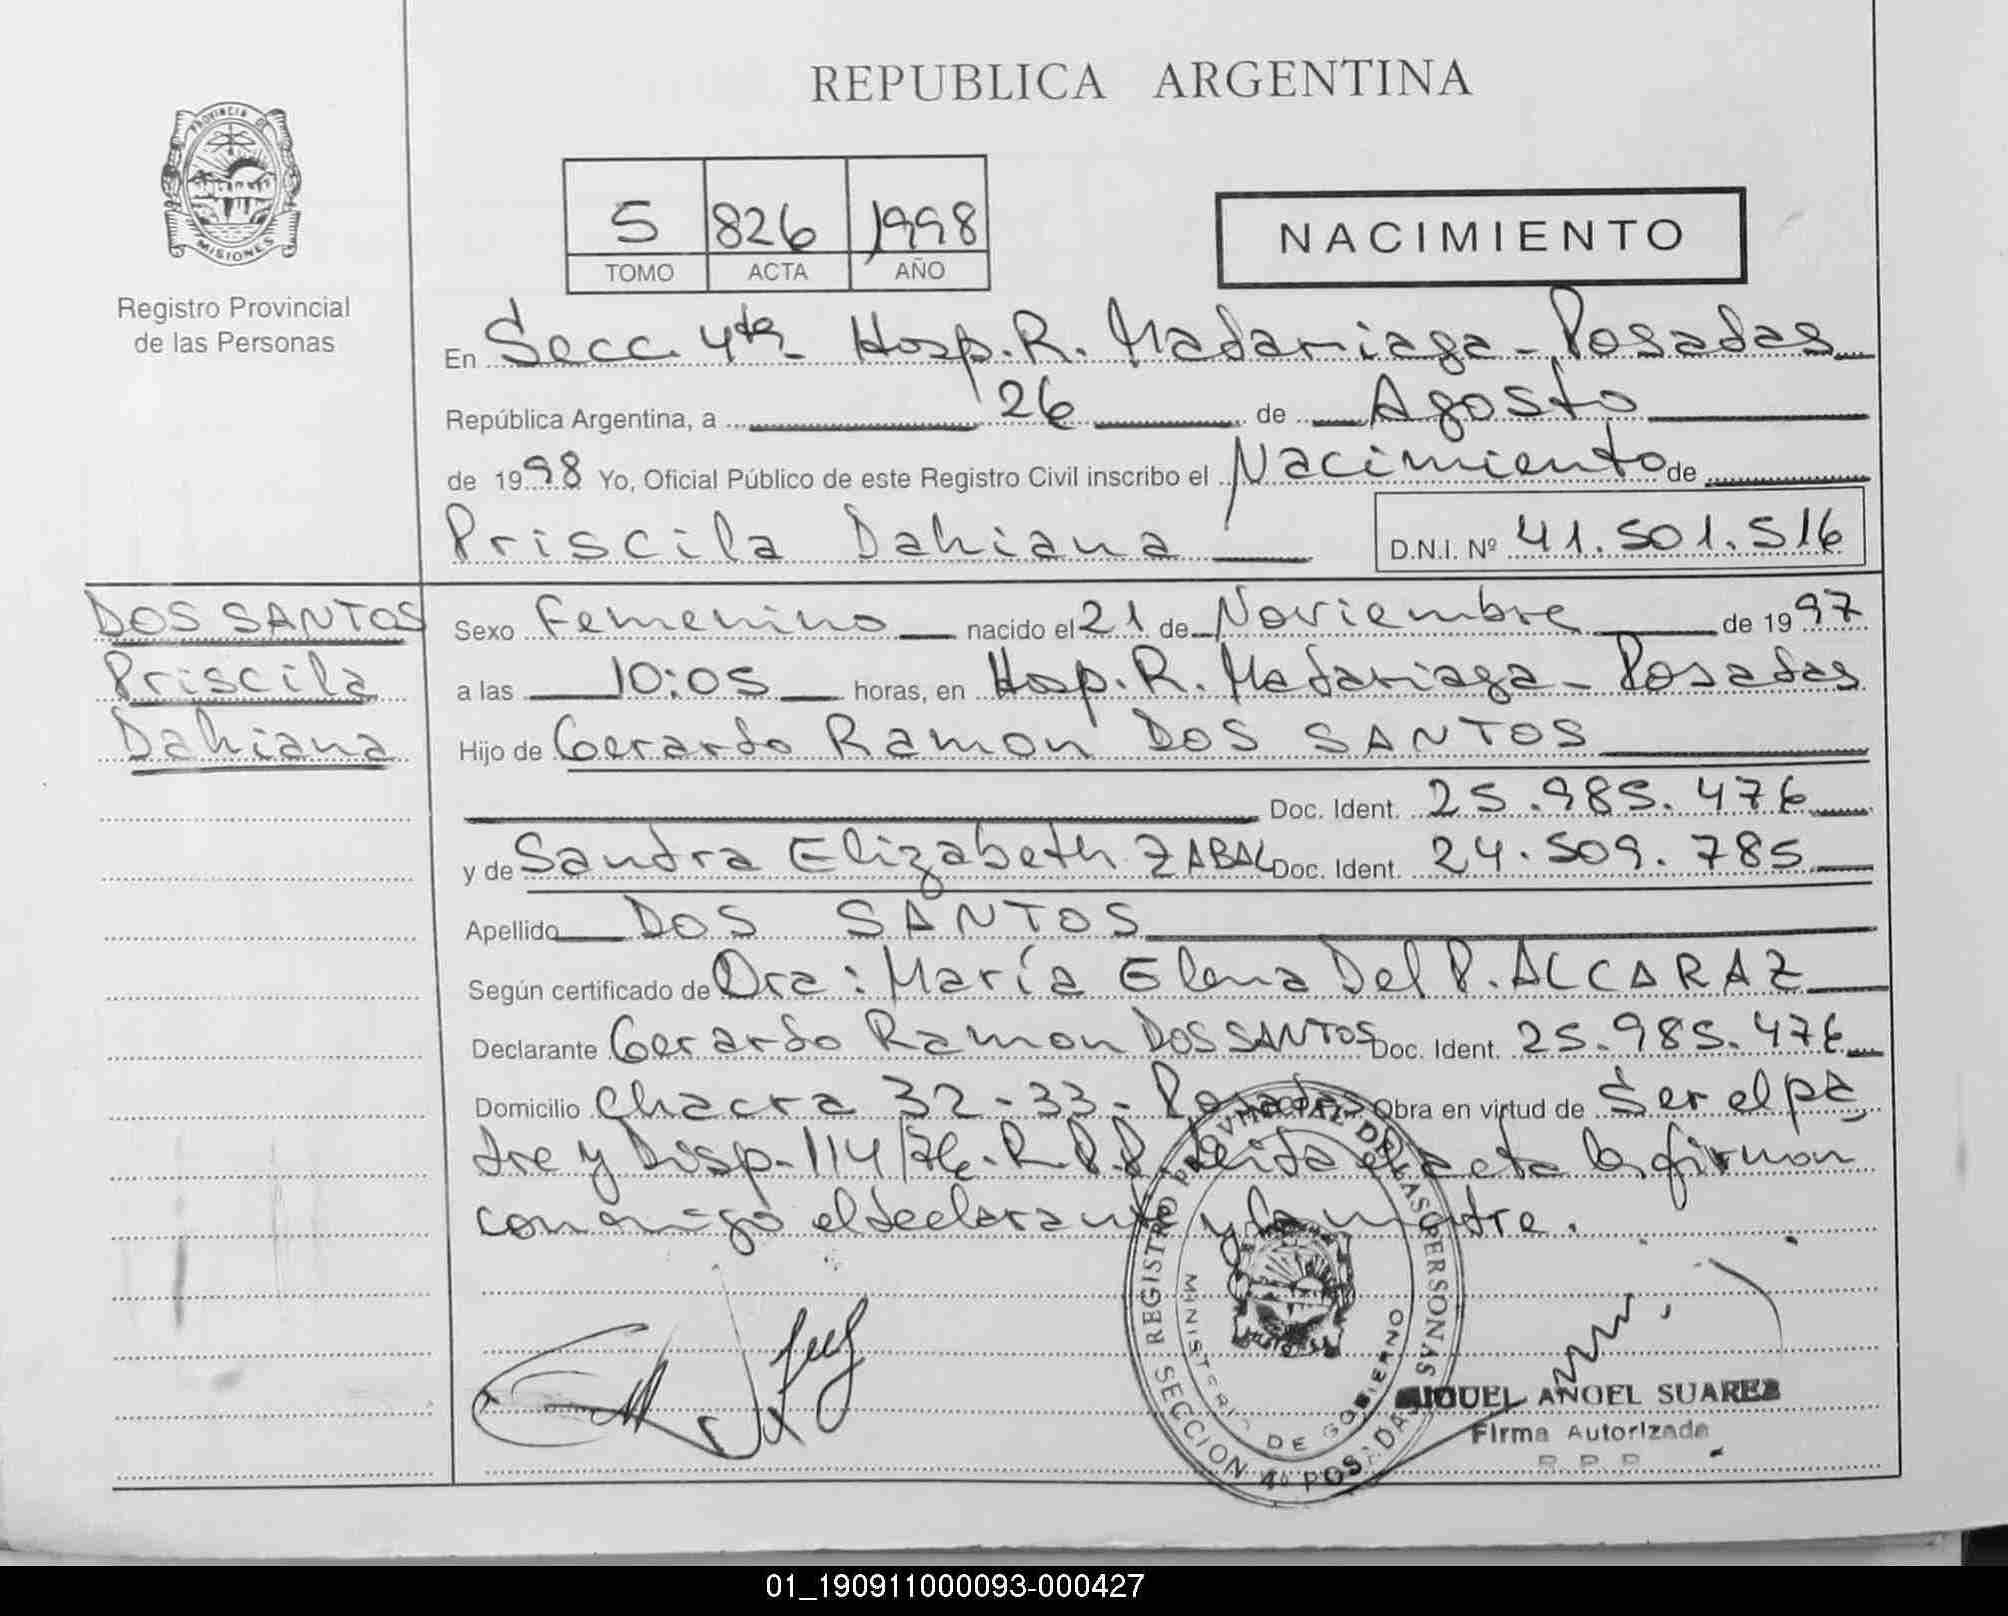 REPUBLICA ARGENTINA
PROVINCIA DE
MISIONES
Registro Provincial
de las Personas
5 826 1998
TOMO ACTA AÑO
NACIMIENTO
En Secc. 4ta Hosp. R. Madariaga - Posadas
República Argentina, a 26 de Agosto
de 1998 Yo, Oficial Público de este Registro Civil inscribo el Nacimiento de
Priscila Dahiana D.N.I. Nº 41.501.516
DOS SANTOS
Priscila
Dahiana
Sexo Femenino nacido el 21 de Noviembre de 1997
a las 10:05 horas, en Hosp. R. Madariaga - Posadas
Hijo de Gerardo Ramon DOS SANTOS
Doc. Ident. 25.985.476
y de Sandra Elizabeth ZABAL Doc. Ident. 24.509.785
Apellido DOS SANTOS
Según certificado de Dra: María Elena Del P. ALCARAZ
Declarante Gerardo Ramon DOS SANTOS Doc. Ident. 25.985.476
Domicilio Chacra 32-33- Posadas Obra en virtud de Ser el pa
dre y Disp. 114/96. R.P.P. Leida el acta la firman
conmigo el declarante y la madre.
REGISTRO PROVINCIAL DE LAS PERSONAS
MINISTERIO DE GOBIERNO
SECCION 4º POSADAS
MIGUEL ANGEL SUAREZ
Firma Autorizada
R P P
01_190911000093-000427